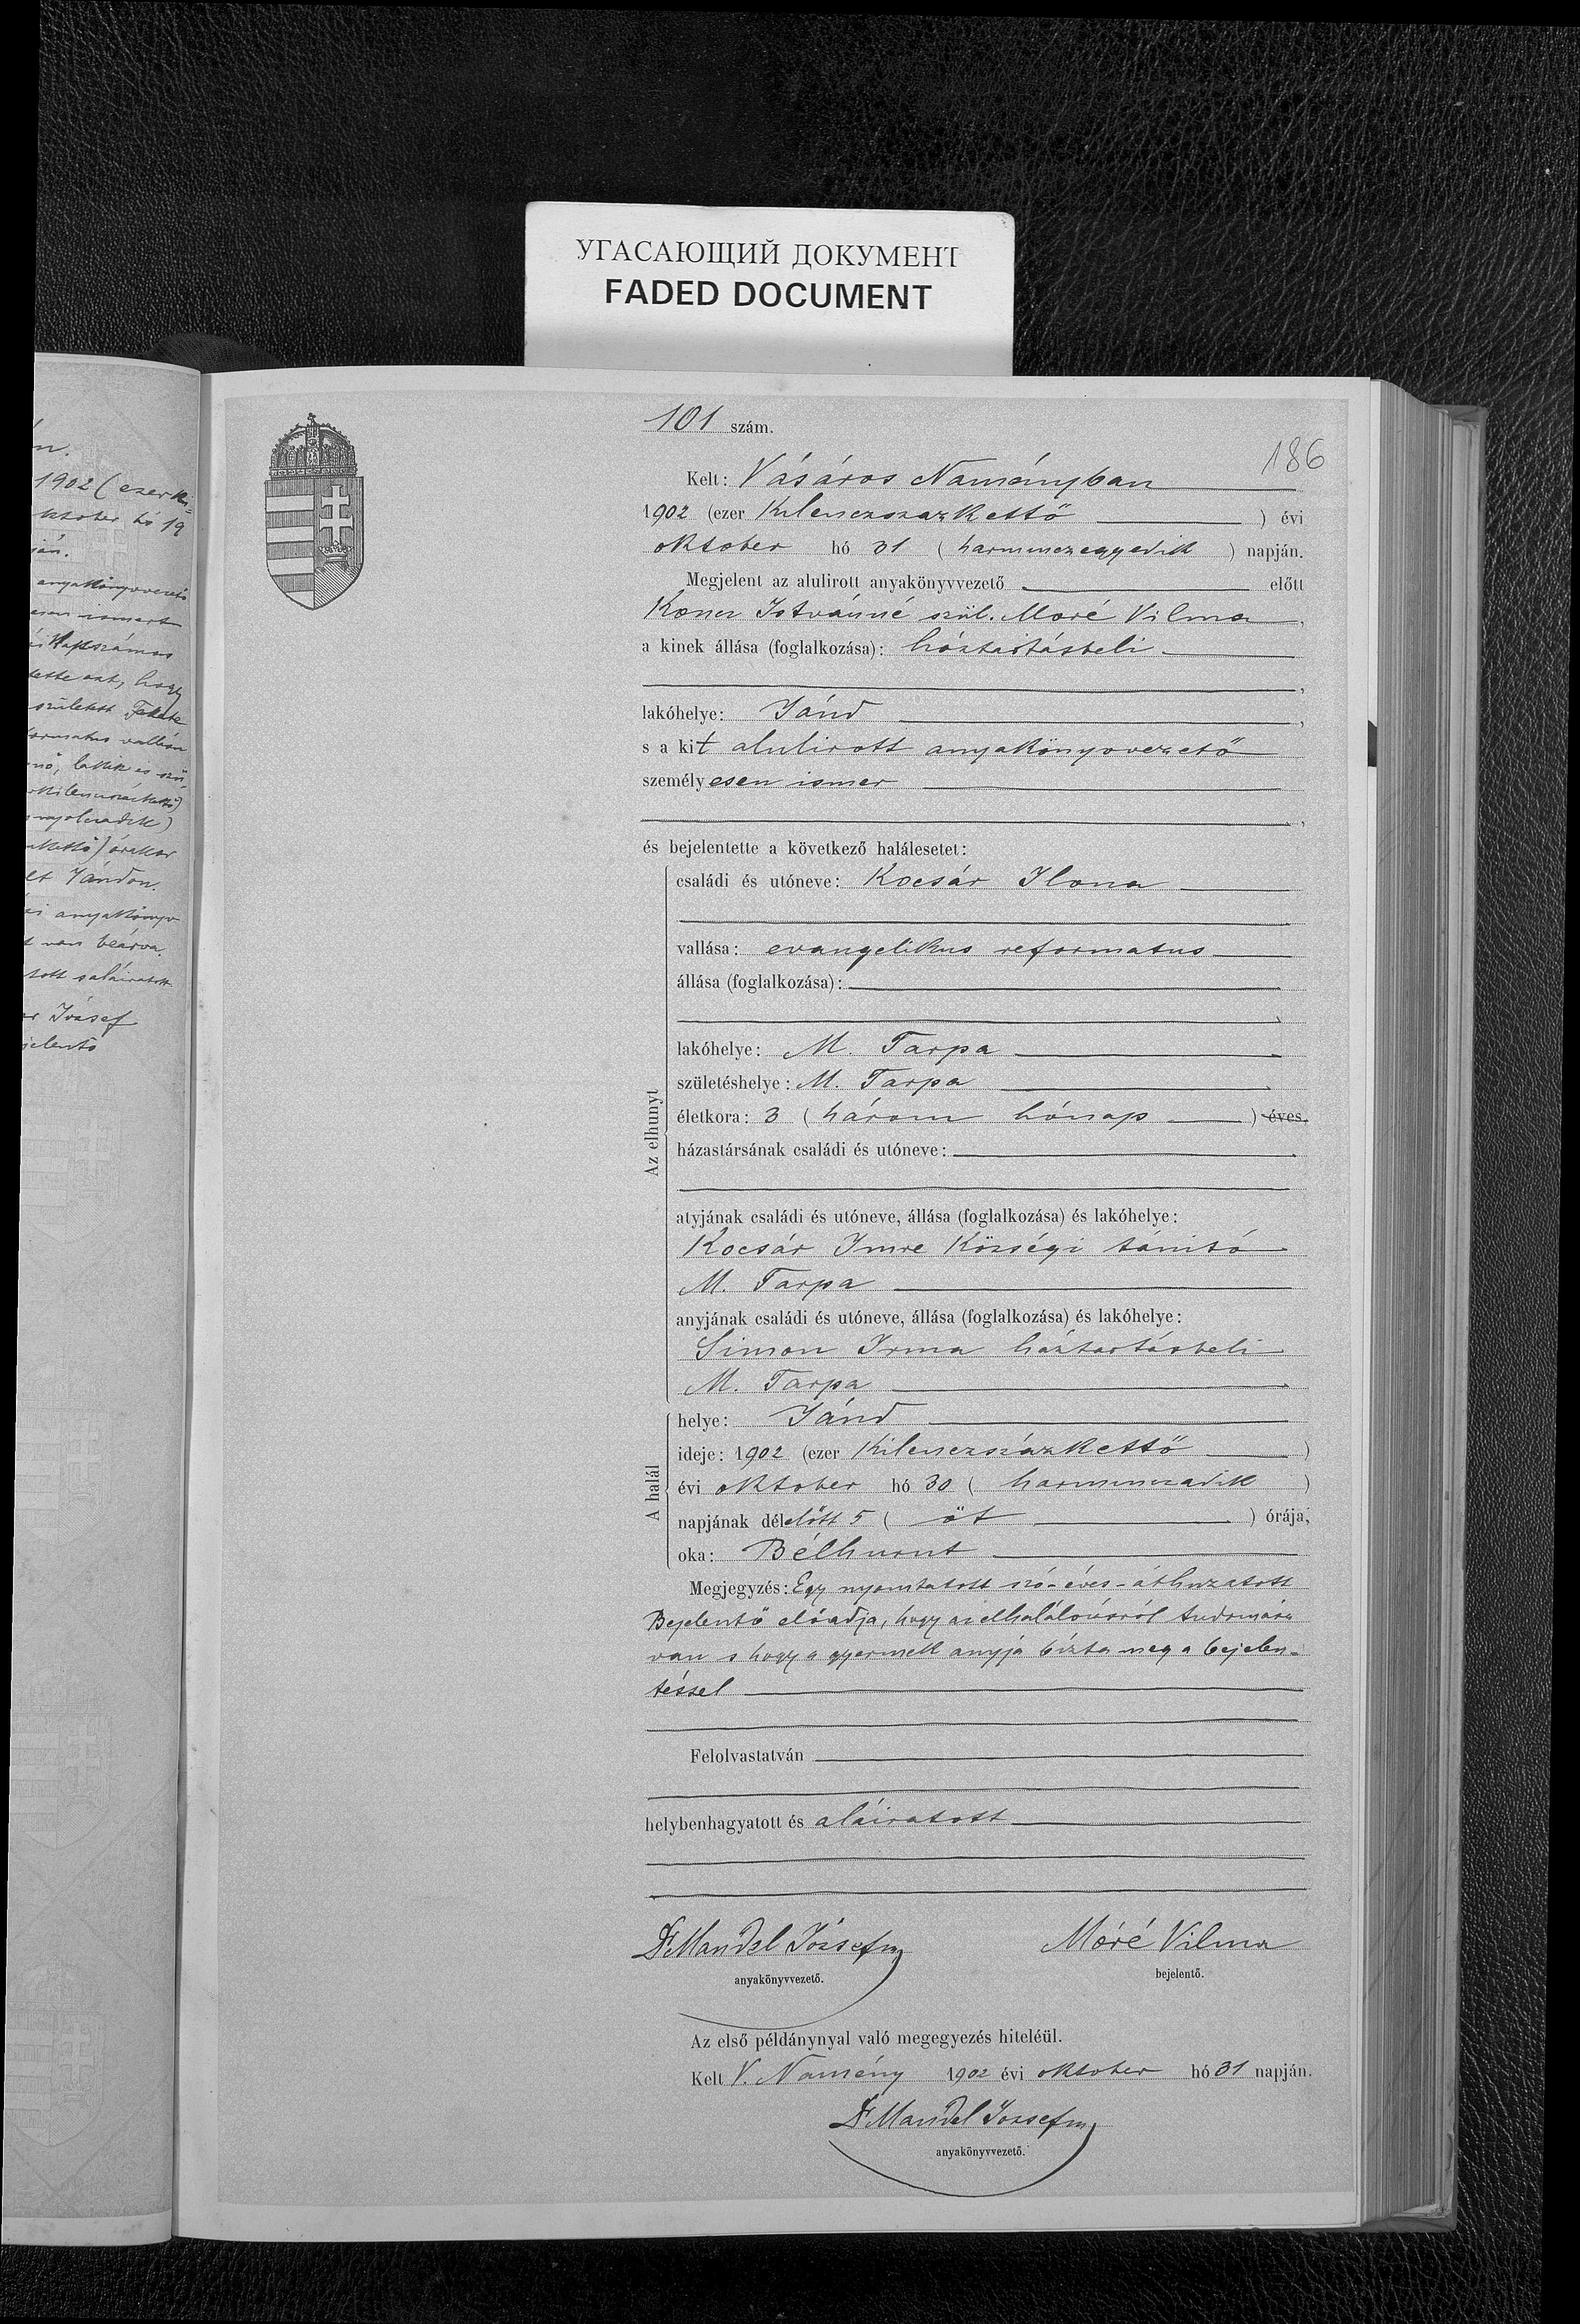 УГАСАЮЩИЙ ДОКУМЕНТ
FADED DOCUMENT
1902 (ezerki=
ktober hó 19
ján.
anyakönyvvezető
ismert
Napszámos
tette azt, hogy
született Fekete
ormatus vallásu
lakik és szü,
kilenczszázkettő)
nyolczadik)
órakor
Jándon.
anyakönyv
van beírva.
tott s aláiratott
József
jelentő
101 szám.
186
Kelt: Vásáros Naményban
1902 (ezer kilenczszázkettő ) évi
oktober hó 31 ( harminczegyedik ) napján.
Megjelent az alulirott anyakönyvvezető előtt
Koncz Istvánné szül. Moré Vilma,
a kinek állása (foglalkozása): háztartásbeli
,
lakóhelye: Jánd ,
s a kit alulirott anyakönyvvezető
személyesen ismer
,
és bejelentette a következő halálesetet:
Az elhunyt
családi és utóneve: Kocsár Ilona
vallása: evangelikus reformatus
állása (foglalkozása):
lakóhelye: M. Tarpa
születéshelye: M. Tarpa
életkora: 3 ( három hónap ) éves.
házastársának családi és utóneve:
atyjának családi és utóneve, állása (foglalkozása) és lakóhelye:
Kocsár Imre községi tánitó
M. Tarpa
anyjának családi és utóneve, állása (foglalkozása) és lakóhelye:
Simon Irma háztartásbeli
M. Tarpa
A halál
helye: Jánd
ideje: 1902 (ezer kilenczszázkettő )
évi oktober hó 30 ( harminczadik )
napjának délelőtt 5 ( öt ) órája,
oka: Bélhurut
Megjegyzés: Egy nyomtatott szó - éves - áthuzatott
Bejelentő előadja, hogy az elhalálozásról tudomása
van s hogy a gyermek anyja bízta meg a bejelen=
téssel
Felolvastatván
helybenhagyatott és aláiratott
Dr Mandel József
Móré Vilma
anyakönyvvezető.
bejelentő.
Az első példánynyal való megegyezés hiteléül.
Kelt V. Namény 1902 évi oktober hó 31 napján.
Dr Mandel József
anyakönyvvezető.